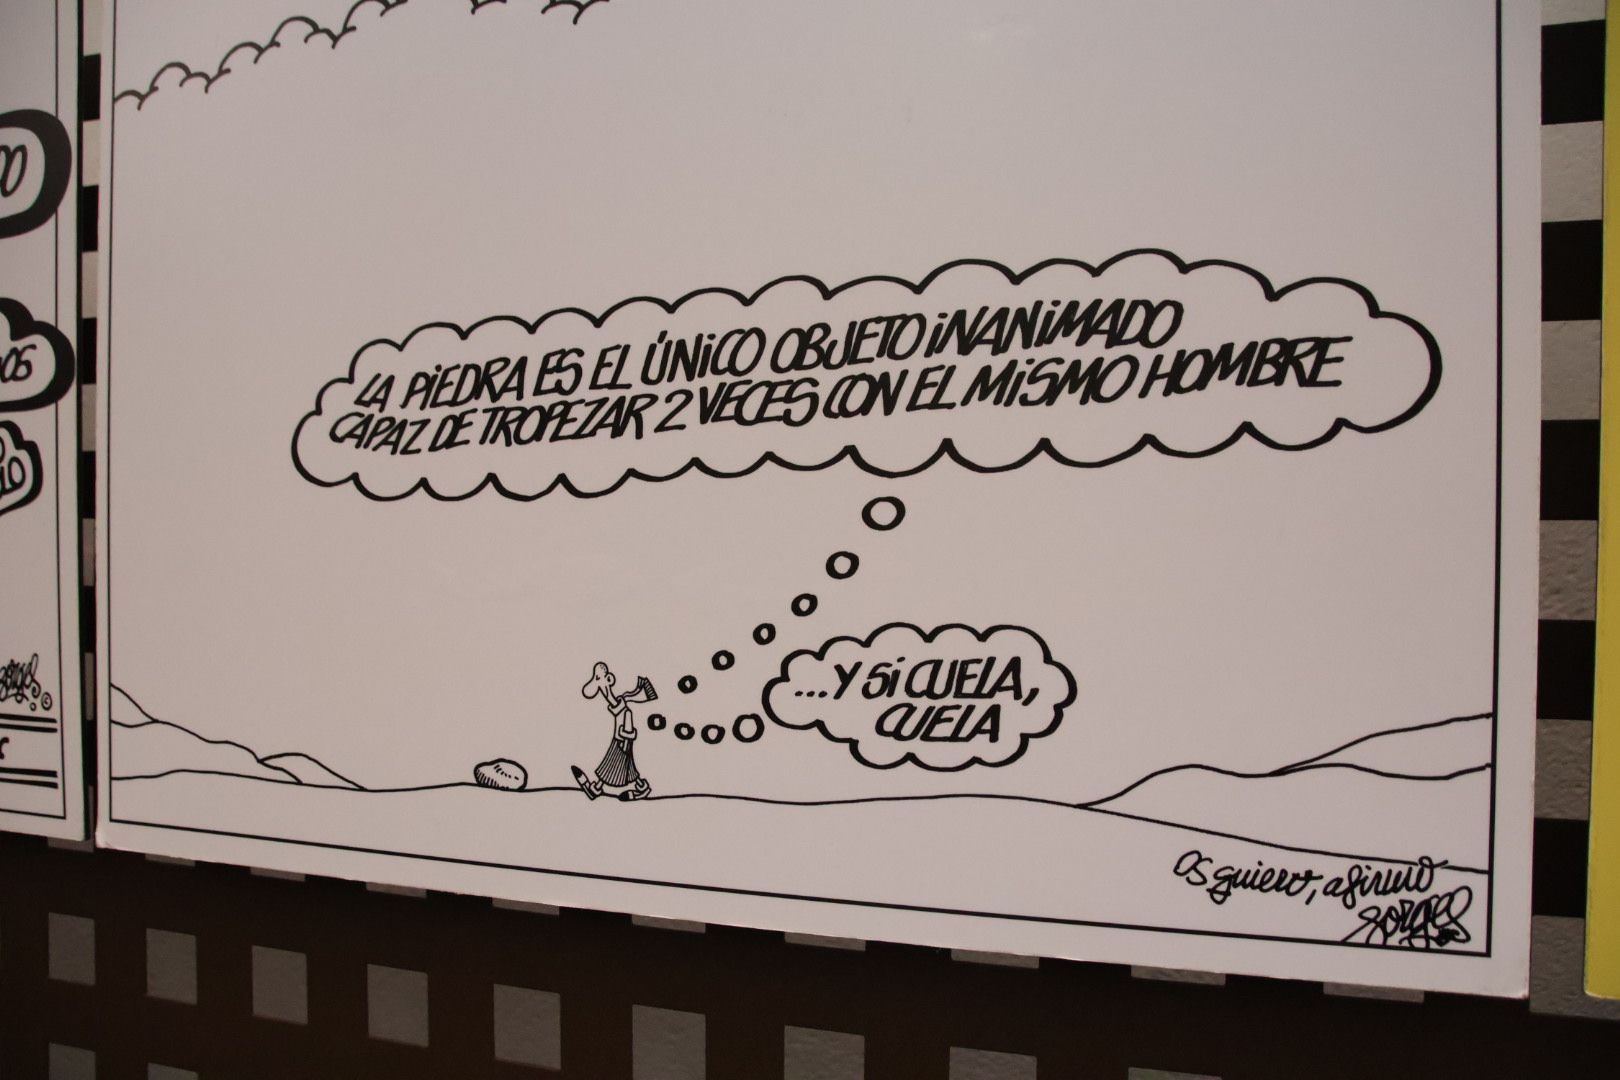 LA PIEDRA ES EL ÚNICO OBJETO INANIMADO
CAPAZ DE TROPEZAR 2 VECES CON EL MISMO HOMBRE
...Y SI CUELA,
CUELA
os quiero, afirmo
Forges
OS
Forges
©